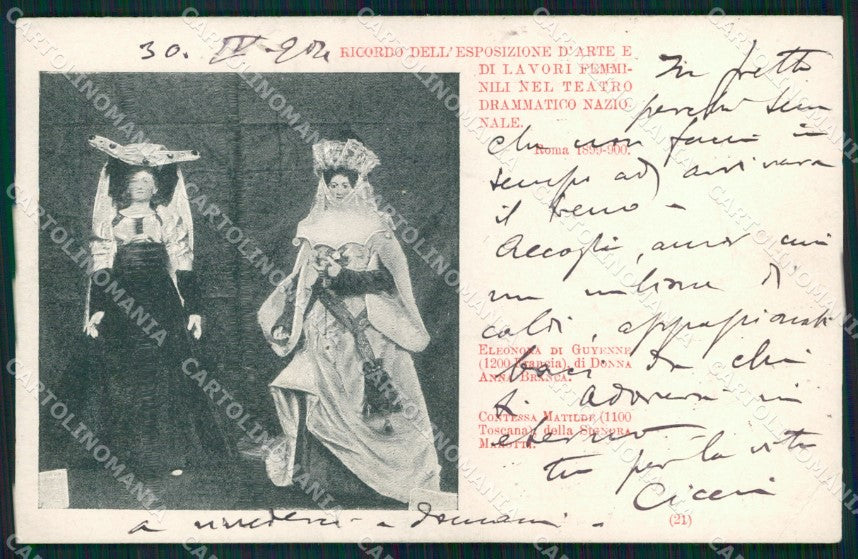 30. IV - 904
RICORDO DELL'ESPOSIZIONE D'ARTE E
DI LAVORI FEMMI-
NILI NEL TEATRO
DRAMMATICO NAZIO-
NALE.
Roma 1899-900.
In fretta
perché
che non faccia in
tempo ad arrivare
il treno -
Accogli, amor mio
un milione di
caldi, appassionati
baci da chi
ti adorerà in
eterno
tu per la vita
a rivederci - a domani -
ELEONORA DI GUYENNE
(1200 Francia), di DONNA
ANNA BRANCA.
CONTESSA MATILDE (1100
Toscana), della SIGNORA
(21)
CARTOLINOMANIA